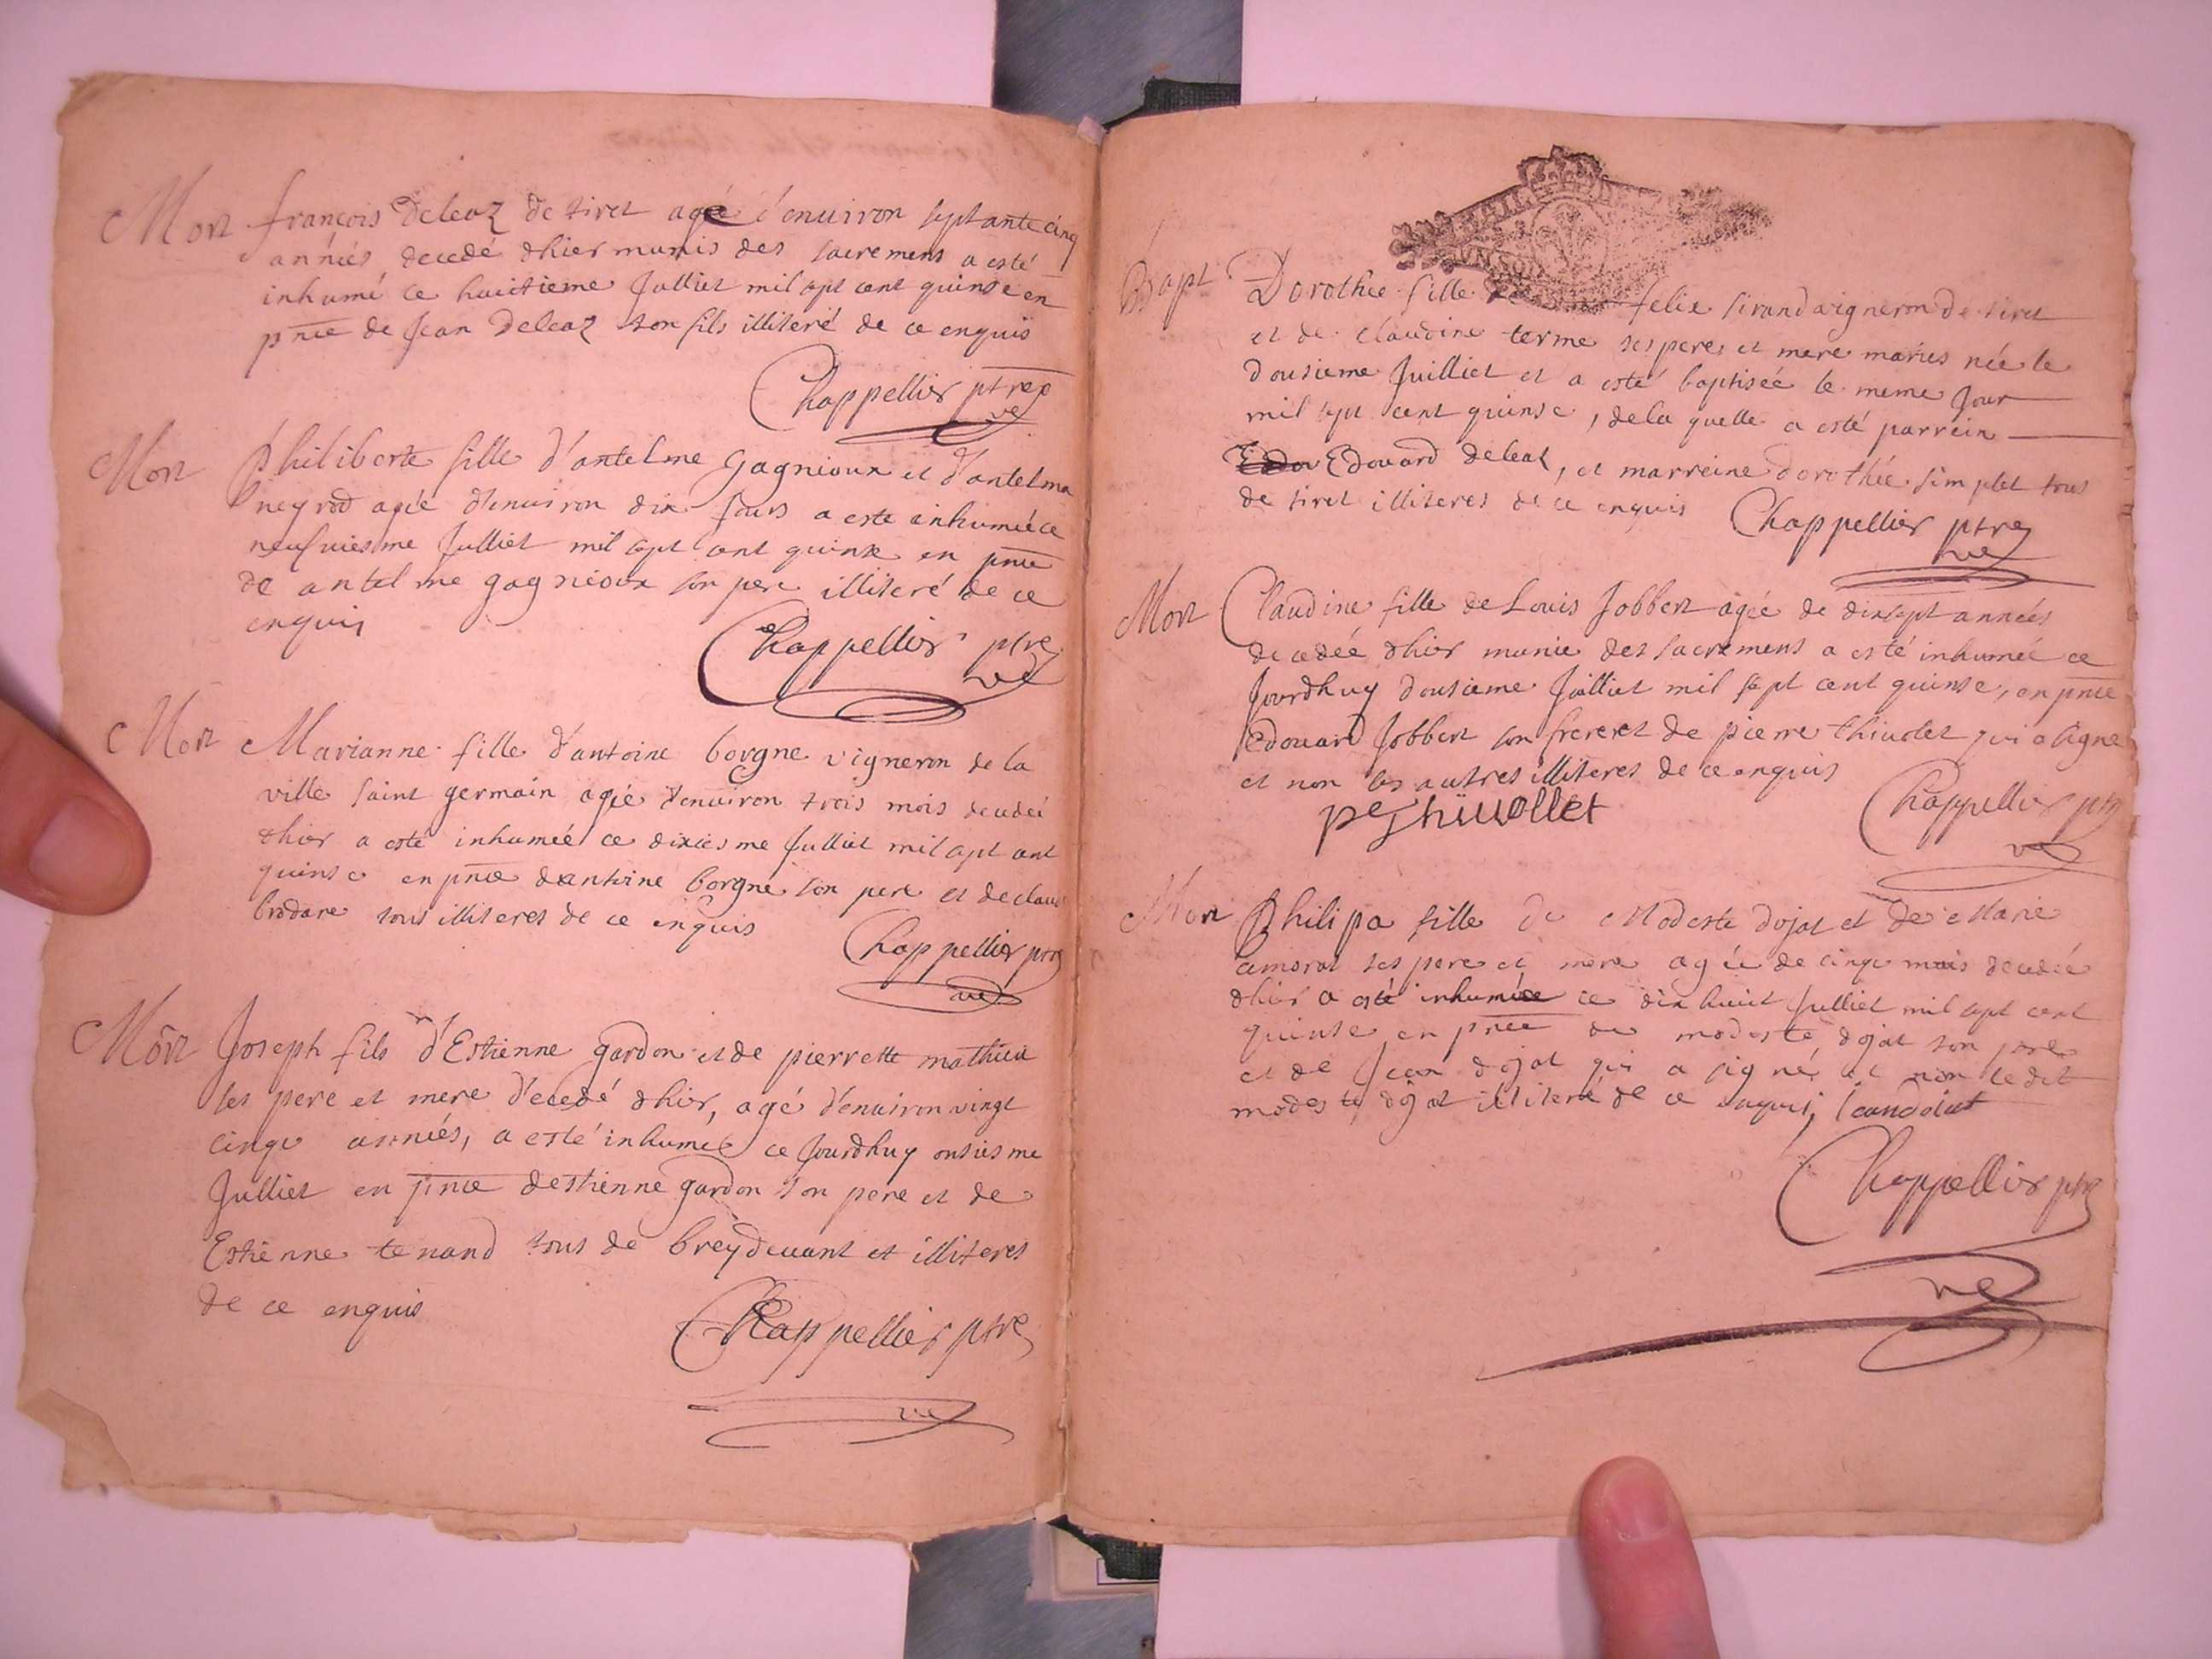 Mort françois Deleaz de tiret agé d'enuiron septante cinq
années decedé dhier munis des sacremens a esté
inhumé ce huictieme Julliet mil sept cent quinse en
pnce de Jean Deleaz son fils illiteré de ce enquis
Chappellier ptre
ve
Mort Philiberte fille d'antelme gagnioux et d'antelma
neyrod agée d'enuiron dix jours a esté inhumée ce
neufuiesme Julliet mil sept cent quinse en pnce
de antelme gagnioux son pere illiteré de ce
enquis
Chappellier ptre
ve
Mort Marianne fille d'antoine borgne vigneron de la
ville saint germain agée d'enuiron trois mois decedeé
dhier a esté inhumeé ce dixiesme Julliet mil sept cent
quinse en pnce dantoine borgne son pere et de claud
brodare tous illiteres de ce enquis
Chappellier ptre
ve
Mort Joseph fils d'Estienne gardon et de pierrette mathieu
ses pere et mere decedé dhier, agé d'enuiron vingt
cinq années, a esté inhumé ce Jourdhuy onsiesme
Julliet en pnce destienne gardon son pere et de
Estienne tenand tous de breydeuant et illiteres
de ce enquis
Chappellier ptre
ve
Bapt Dorothee fille de felix sirand vigneron de tiret
et de claudine terme ses pere et mere mariés née le
dousieme Juilliet et a esté baptisée le meme Jour
mil sept cent quinse, de la quelle a esté parrein
Edouard deleaz, et marreine dorothée simplet tous
de tiret illiteres de ce enquis Chappellier ptre
ve
Mort Claudine fille de Louis Jobbert agée de dixsept années
decedée dhier munie des sacremens a esté inhumeé ce
Jourdhuy dousieme Juilliet mil sept cent quinse, en pnce
Edouard Jobbert son frere et de pierre thiuolet qui a signé
et non les autres illiteres de ce enquis
pe Thiuollet Chappellier ptre
ve
Mort Philipa fille de Modeste dojat et de Marie
amorat ses pere et mere agée de cinq mois decedée
dhier a esté inhumée ce dix huict Julliet mil sept cent
quinse en pnce de modeste dojat son pere
et de Jean dojat qui a signé et non ledit
modeste dojat illiteré de ce enquis Jean doiat
Chappellier ptre
ve